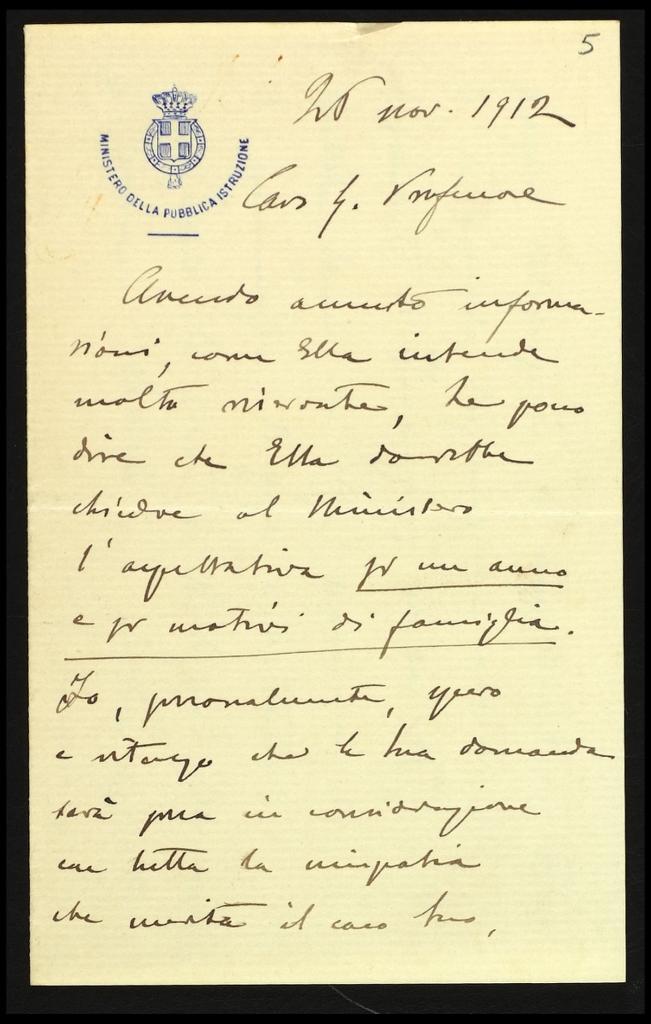 5
MINISTERO DELLA PUBBLICA ISTRUZIONE
26 nov. 1912
Caro G. Professore
Avendo assunto informa-
zioni, come Ella intende
molto riservate, Le posso
dire che Ella dovrebbe
chiedere al Ministero
l'aspettativa pr un anno
e pr motivi di famiglia.
Io, personalmente, spero
e ritengo che la Sua domanda
sarà presa in considerazione
con tutta la simpatia
che merita il caso Suo,